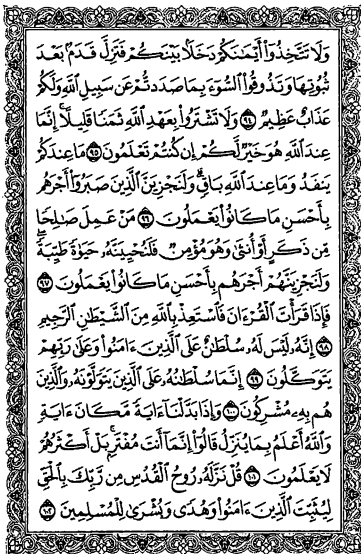 وَلَا تَتَّخِذُوٓا۟ أَيْمَٰنَكُمْ دَخَلًۢا بَيْنَكُمْ فَتَزِلَّ قَدَمٌۢ بَعْدَ
ثُبُوتِهَا وَتَذُوقُوا۟ ٱلسُّوٓءَ بِمَا صَدَدتُّمْ عَن سَبِيلِ ٱللَّهِ وَلَكُمْ
عَذَابٌ عَظِيمٌ ٩٤ وَلَا تَشْتَرُوا۟ بِعَهْدِ ٱللَّهِ ثَمَنًا قَلِيلًا إِنَّمَا
عِندَ ٱللَّهِ هُوَ خَيْرٌ لَّكُمْ إِن كُنتُمْ تَعْلَمُونَ ٩٥ مَا عِندَكُمْ
يَنفَدُ وَمَا عِندَ ٱللَّهِ بَاقٍ وَلَنَجْزِيَنَّ ٱلَّذِينَ صَبَرُوٓا۟ أَجْرَهُم
بِأَحْسَنِ مَا كَانُوا۟ يَعْمَلُونَ ٩٦ مَنْ عَمِلَ صَٰلِحًا
مِّن ذَكَرٍ أَوْ أُنثَىٰ وَهُوَ مُؤْمِنٌ فَلَنُحْيِيَنَّهُۥ حَيَوٰةً طَيِّبَةً
وَلَنَجْزِيَنَّهُمْ أَجْرَهُم بِأَحْسَنِ مَا كَانُوا۟ يَعْمَلُونَ ٩٧
فَإِذَا قَرَأْتَ ٱلْقُرْءَانَ فَٱسْتَعِذْ بِٱللَّهِ مِنَ ٱلشَّيْطَٰنِ ٱلرَّجِيمِ
٩٨ إِنَّهُۥ لَيْسَ لَهُۥ سُلْطَٰنٌ عَلَى ٱلَّذِينَ ءَامَنُوا۟ وَعَلَىٰ رَبِّهِمْ
يَتَوَكَّلُونَ ٩٩ إِنَّمَا سُلْطَٰنُهُۥ عَلَى ٱلَّذِينَ يَتَوَلَّوْنَهُۥ وَٱلَّذِينَ
هُم بِهِۦ مُشْرِكُونَ ١٠٠ وَإِذَا بَدَّلْنَآ ءَايَةً مَّكَانَ ءَايَةٍ
وَٱللَّهُ أَعْلَمُ بِمَا يُنَزِّلُ قَالُوٓا۟ إِنَّمَآ أَنتَ مُفْتَرٍۭ بَلْ أَكْثَرُهُمْ
لَا يَعْلَمُونَ ١٠١ قُلْ نَزَّلَهُۥ رُوحُ ٱلْقُدُسِ مِن رَّبِّكَ بِٱلْحَقِّ
لِيُثَبِّتَ ٱلَّذِينَ ءَامَنُوا۟ وَهُدًى وَبُشْرَىٰ لِلْمُسْلِمِينَ ١٠٢